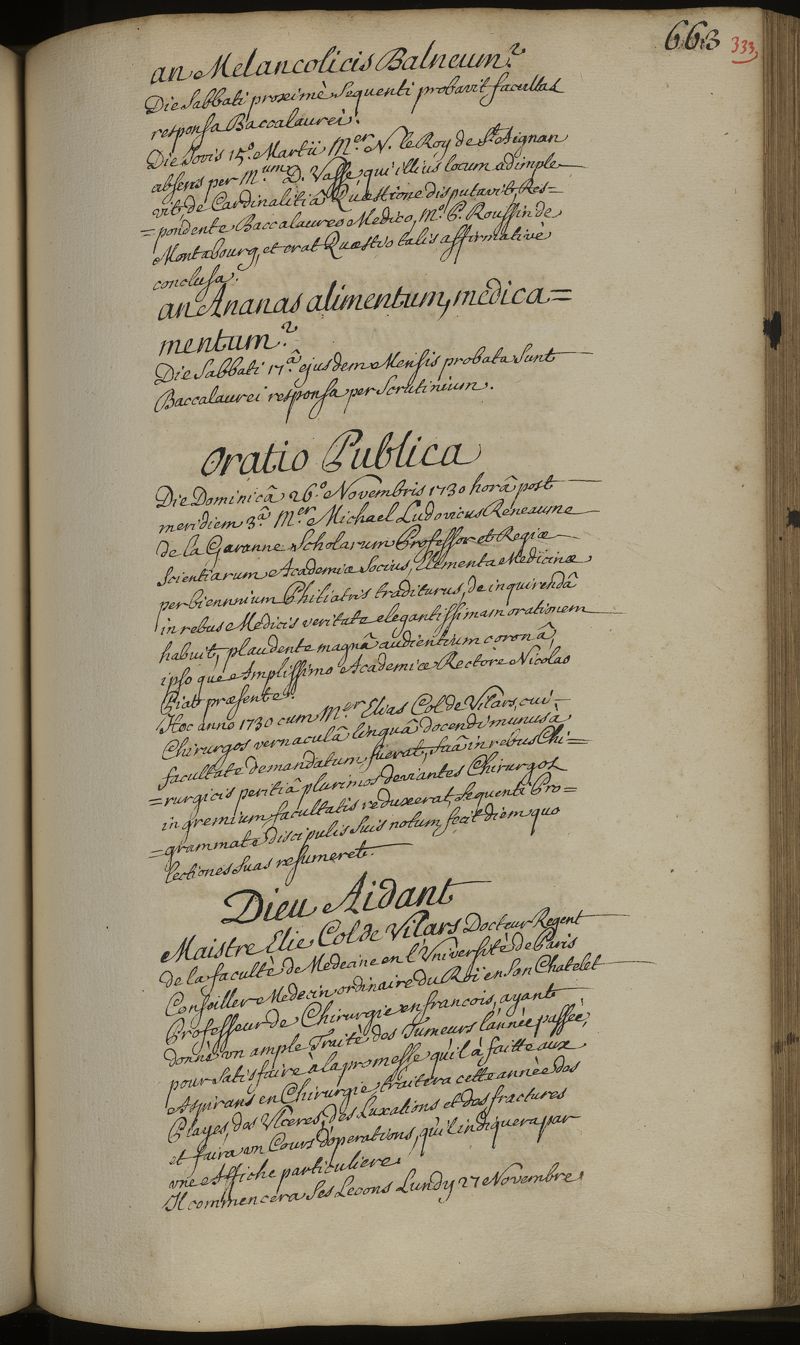 663
333
an Melancolicis Balneum?
Die Sabbati proximè Sequenti probavit facultas
responsa Baccalaurei.
Die Jovis 15º Martii Mer N. le Roy de St Aignan
absens per Mum D. Vasse qui illius locum adimple-
vit, de Cardinalitiâ Quæstione disputavit, Res=
=pondente Baccalaureo Medico, Mº P. Roussin de
Montabourg, et erat Quæstio talis affirmativè
conclusa.
an Ananas alimentum, medica=
mentum?
Die Sabbati 17ª ejusdem Mensis probata Sunt
Baccalaurei responsa per Scrutinium.
Oratio Publica
Die Dominicâ 26º Novembris 1730 horâ post
meridiem 3ª Mer Michael Ludovicus Reneaume
de la Garanne Scholarum Professor et Regiæ
Scientiarum Academiæ Socius, Elementa Medicinæ
per biennium Philiatris traditurus, de inquirendâ
in rebus Medicis veritate elegantissimam orationem
habuit, plaudente magnâ audientium coronâ,
ipso que Amplissimo Academiæ Rectore Nicolao
Piat præsente.
Hoc anno 1730 cum Mer Elias Col de Vilars, cui
Chirurgos vernaculâ linguâ docendi munus à
facultate demandatum fuerat, suâ in rebus Chi=
=rurgicis peritiâ plurimos deviantes Chirurgos
in gremium facultatis reduxerat, Sequenti Pro=
=grammate Discipulis Suis notum fecit diem quo
lectiones Suas resumeret.
Dieu Aidant
Maistre Elie Col de Vilars Docteur Regent
de la faculté de Medecine en l'Université de Paris
Conseiller Medecin ordinaire du Roï en Son Chatelet
Professeur de Chirurgie en francois, ayant
donné un ample Traité des Tumeurs l'année passée,
pour Satisfaire à la promesse qu'il à faitte aux
Aspirans en Chirurgie, traitera cette année des
Playes, des Ulceres, des Luxations et des fractures
et faira un Cours d'operations, qu'il indiquera par
une Affiche particuliere.
Il commencera Ses Lecons Lundy 27 Novembre